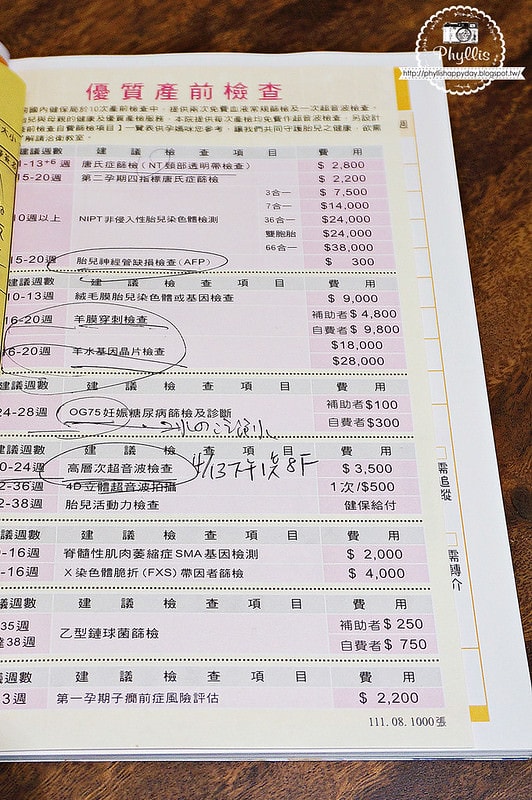 Phyllis
http://phyllishappyday.blogspot.tw/
優質產前檢查
國內健保局於10次產前檢查中，提供兩次免費血液常規篩檢及一次超音波檢查，
胎兒與母親的健康及優質服務，本院提供每次產檢均免費作超音波檢查，另設計
前檢查自費篩檢項目】一覽表供孕媽咪您參考，讓我們共同守護胎兒之健康，欲需
了解請洽衛教室。
週數 建議檢查項目 費用
11-13+6週 唐氏症篩檢(NT頸部透明帶檢查) $ 2,800
15-20週 第二孕期四指標唐氏症篩檢 $ 2,200
3合一 $ 7,500
7合一 $14,000
10週以上 NIPT非侵入性胎兒染色體檢測 36合一 $24,000
雙胞胎 $24,000
66合一 $38,000
15-20週 胎兒神經管缺損檢查(AFP) $ 300
建議週數 建議檢查項目 費用
10-13週 絨毛膜胎兒染色體或基因檢查 $ 9,000
16-20週 羊膜穿刺檢查 補助者 $ 4,800
自費者 $ 9,800
16-20週 羊水基因晶片檢查 $18,000
$28,000
建議週數 建議檢查項目 費用
24-28週 OG75妊娠糖尿病篩檢及診斷 補助者 $100
自費者 $300
議週數 建議檢查項目 費用
20-24週 高層次超音波檢查 $ 3,500
4/13下午1点8F
2-36週 4D立體超音波拍攝 1次/$500
2-38週 胎兒活動力檢查 健保給付
議週數 建議檢查項目 費用
-16週 脊髓性肌肉萎縮症SMA基因檢測 $ 2,000
-16週 X染色體脆折(FXS)帶因者篩檢 $ 4,000
議週數 建議檢查項目 費用
35週 乙型鏈球菌篩檢 補助者 $ 250
38週 自費者 $ 750
議週數 建議檢查項目 費用
3週 第一孕期子癇前症風險評估 $ 2,200
111.08.1000張
週
需追蹤
需轉介